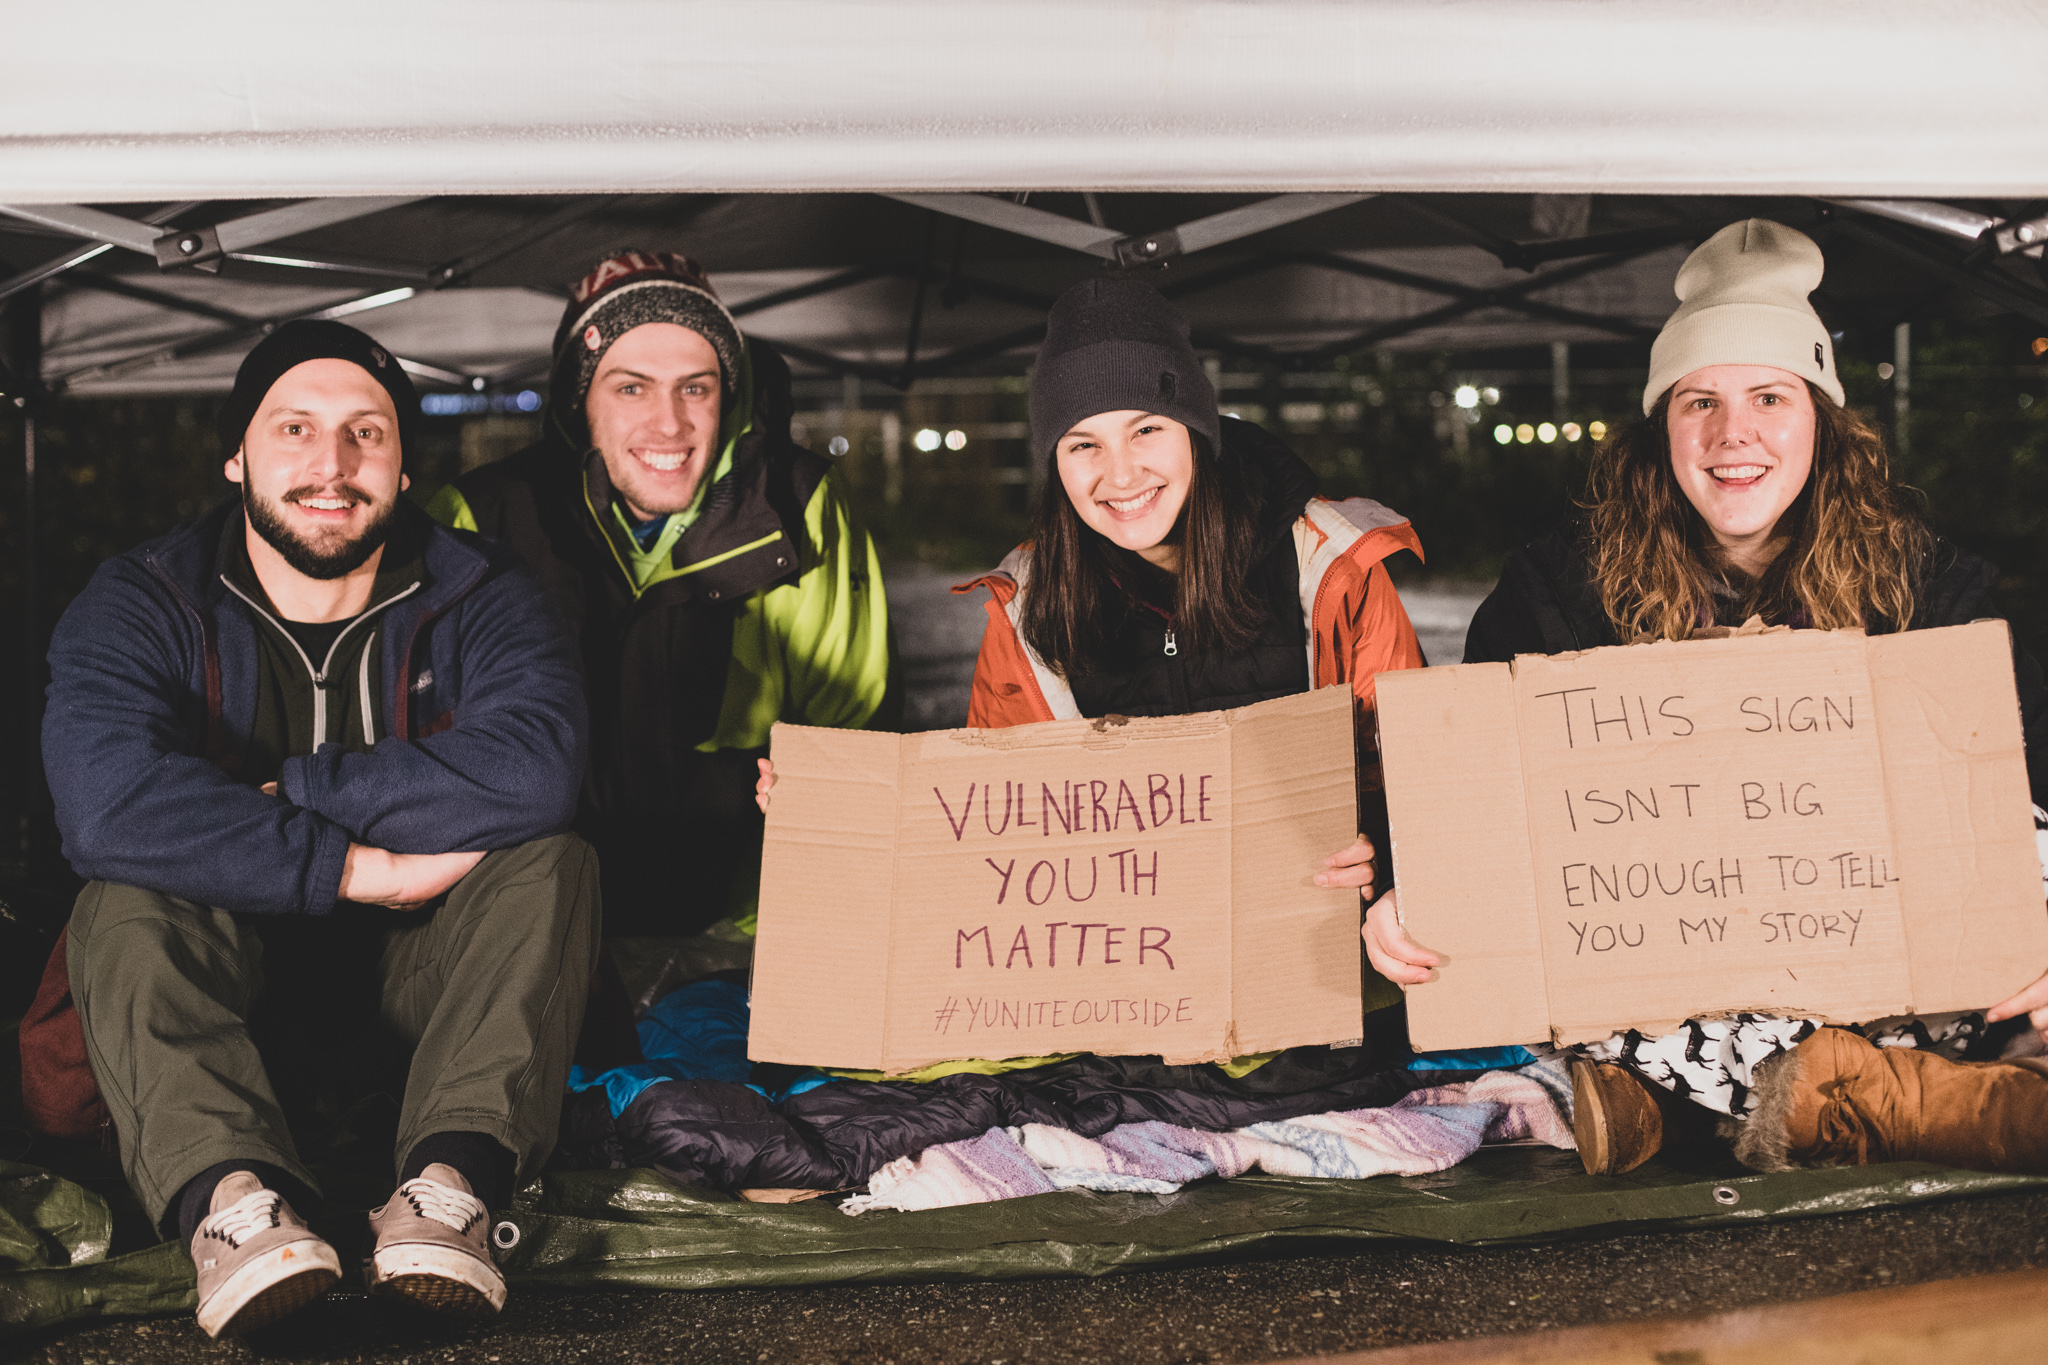 VULNERABLE
YOUTH
MATTER
#YUNITEOUTSIDE
THIS SIGN
ISNT BIG
ENOUGH TO TELL
YOU MY STORY